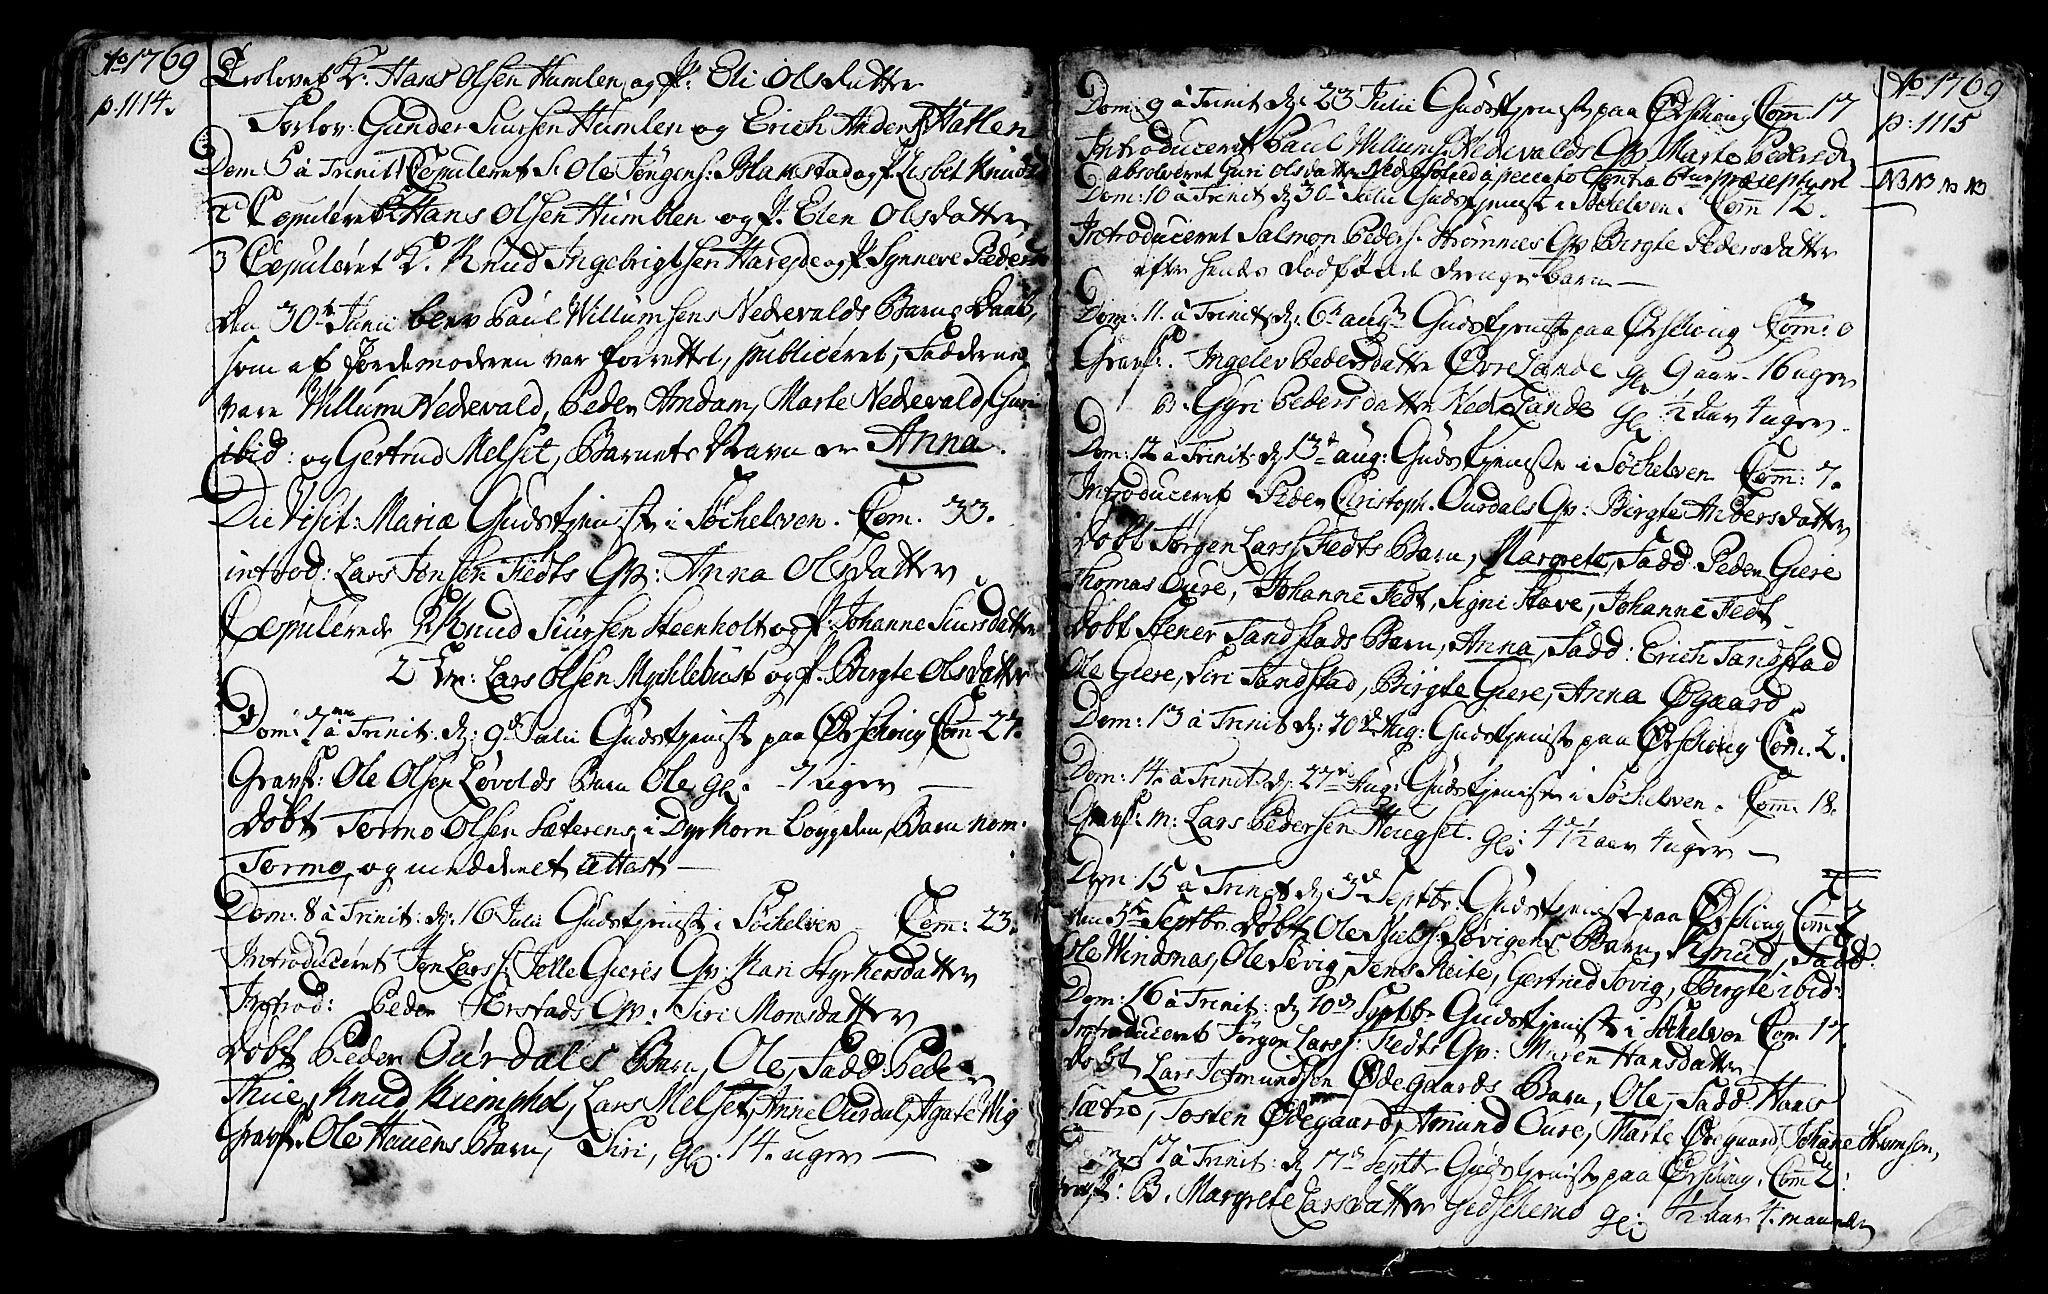 Ao 1769
p. 1114.
Trolovet K: Hans Olsen Humlen og P. Eli Olsdatter
Forlov: Gunder Siursen Humlen og Erich Anders Hatlen
Dom 5 à Trinit Copuleret S. Ole Jørgens: Blakstad og P. Lisbet Knudsd
2 Copuleret K Hans Olsen Humblen og P. Elen Olsdatter
3 Copuleret K. Knud Ingebrigtsen Hareide og P. Synneve Peders
Den 30te Junii blev Paul Willumsens Nedrevalds Barns Daab,
som af Jordemoderen var forrettet, publiceret, Fadderne
vare Willum Nedrevald, Peder Amdam, Marte Nedrevald, Guri
ibid: og Gertrud Melset, Barnets Navn er Anna.
Die Visit: Mariæ Gudstjeniste i Søchelven. Com. 33.
introd: Lars Jensen Fedts Qv: Anna Olsdatter
Copulerede K Knud Siursen Steenholt og P. Johanne Siursdatter
2 Em: Lars Olsen Mychlebust og P. Birgte Olsdatter
Dom: 7 à Trinit: d: 9de Julii Gudstjenist paa Ørschoug Com 27.
Gravf: Ole Olsen Løvolds Barn Ole gl. 7 uger —
Døbt Tormo Olsen Sæterens i Dyrkorn Boygden, Barn nom.
Tormo, og med denet attest —
Dom: 8 à Trinit: d: 16 Julii Gudstjenist i Søchelven Com: 23.
Introduceret Jon Lars: Jelle Gieres Qv: Kari Styrkersdatter
Introd: Peder Herstads Qv: Siri Monsdatter
Døbt Peder Ourdals Barn, Ole, Fadd: Peder
Thue, Knud Kiemphol, Lars Melset, Anne Ourdal, Agate Wig
Gravf. Ole Hauens Barn, Siri, gl. 14. uger —
Ao 1769
p. 1115
NB NB NB NB
Dom: 9 à Trinit d: 23 Julii Gudstjenist paa Ørschoug Com. 17
Introduceret Paul Willums: Nedrevalds Qv. Marte Pedersd
absolveret Guri Olsdatter a peccato contra 6tum præceptum
Dom: 10 à Trinit d: 30te Julii Gudstjenist i Søchelven. Com 12.
Introduceret Salmon Peders: Strømmes Qv. Birgte Pedersdatter
efter hendes dødføde drenge barn —
Dom: 11. à Trinit: d: 6te aug: Gudstjenist paa Ørschoug Com: 0
Gravf: Ingelev Pedersdatter Øvre Lande gl. 9 aar 16 uger
B. Gyri Pedersdatter Nedre Lande gl. ½ aar 4 uger.
Dom: 12 à Trinit: d: 13de aug: Gudstjeniste i Søchelven Com: 7.
Introduceret Peder Christoph. Ourdals Qv: Birgte Andersdatter
Døbt Jørgen Lars: Fedts Barn, Margrete, Fadd. Peder Giere
Thomas Oure, Johanne Fedt, Signi Stave, Johanne Fedt
Døbt Stener Tandstads Barn, Anna, Fadd: Erich Tandstad
Ole Giere, Siri Tandstad, Birgte Giere, Anna Øgaard
Dom: 13 à Trinit d: 20de Aug: Gudstjenist paa Ørschoug Com. 2.
Dom: 14. à Trinit: d: 27de Aug: Gudstjeniste i Søchelven. Com: 18.
Gravf: m: Lars Pedersen Haugset. gl: 47½ aar 4 uger —
Dom: 15 à Trinit d: 3de Septbr: Gudstjenist paa Ørschoug Com 2
den 5te Septbr. Døbt Ole Niels: Søvigens Barn, Knud, Fadd:
Ole Windnas, Ole Søvig, Jens Reite, Gertrued Sovig, Birgte ibid:
Dom: 16 à Trinit: d: 10de Septbr Gudstjenist i Søchelven Com 17.
Introduceret Jørgen Lars: Fedts Qv: Maren Hansdatter
Døbt Lars Jetmundsøn Ødegaards Barn, Ole, Fadd: Hans
Sætre, Tosten Ødegaard, Amund Oure, Marte Ødegaard, Johane Strømsen,
Dom: 17 à Trinit: d: 17de Septbr Gudstjeniste paa Ørschoug. Com 2:
Gravf: B. Margrete Larsdatter Gidschemo gl. ½ aar 4. maaneder